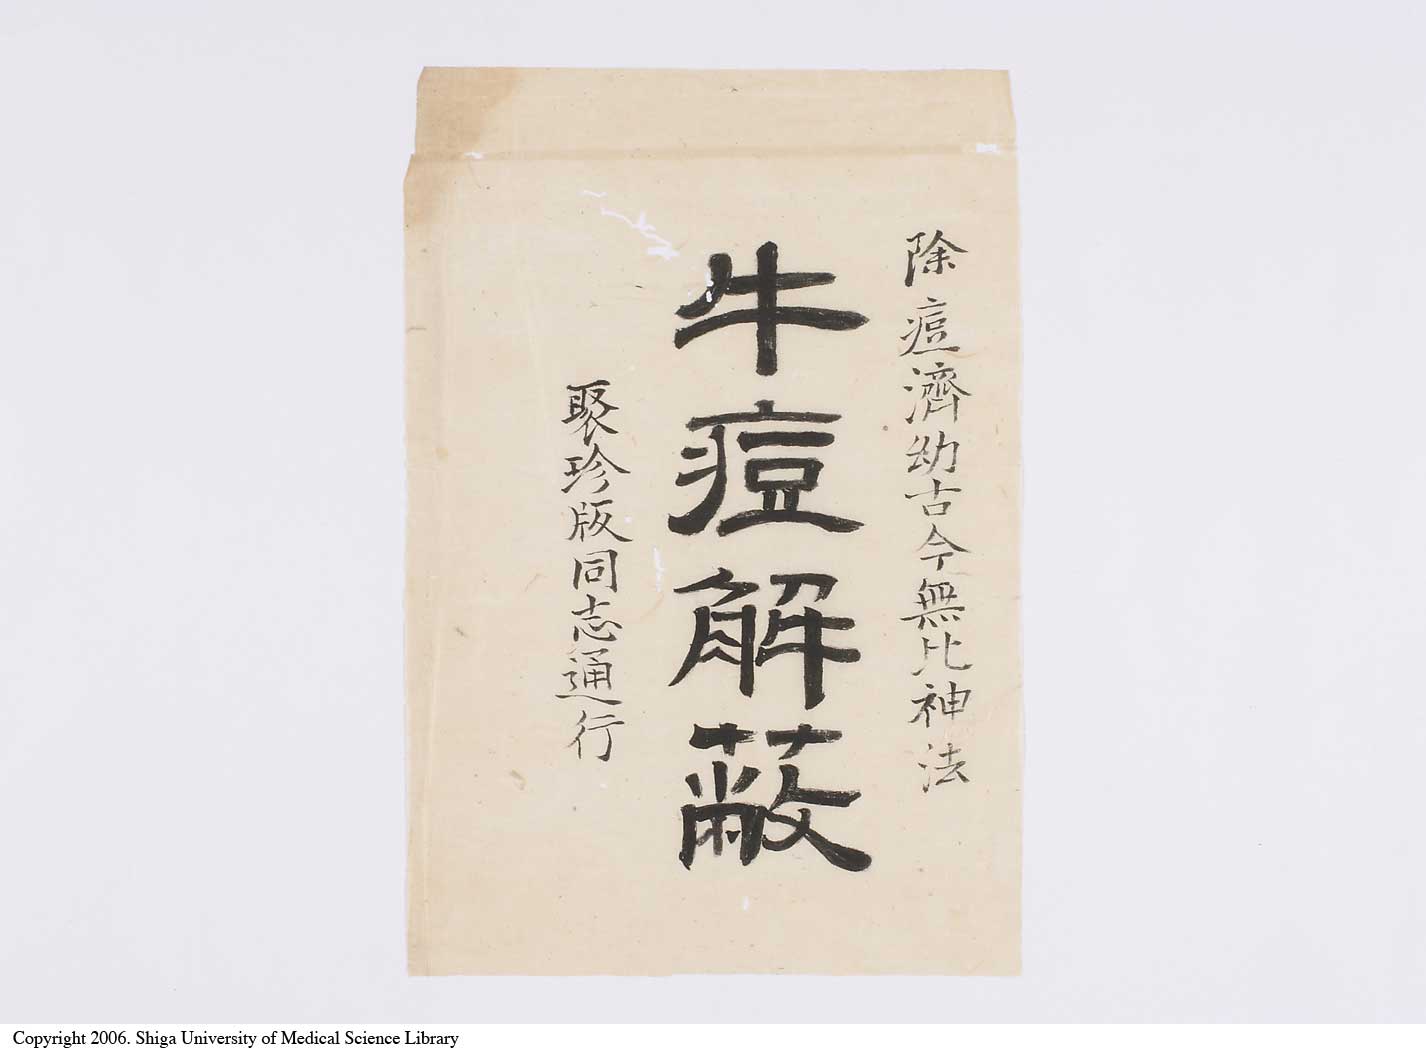 除痘濟幼古今無比神法
牛痘解蔽
聚珍版同志通行
Copyright 2006. Shiga University of Medical Science Library